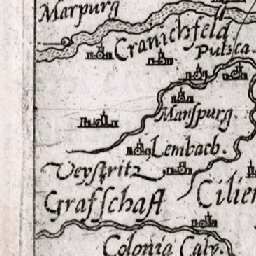 Marpurg
Cranichfeld
Putzla
Manspurg.
Lembach.
Veystritz
Grafschaft
Cilien
Colonia Caly.